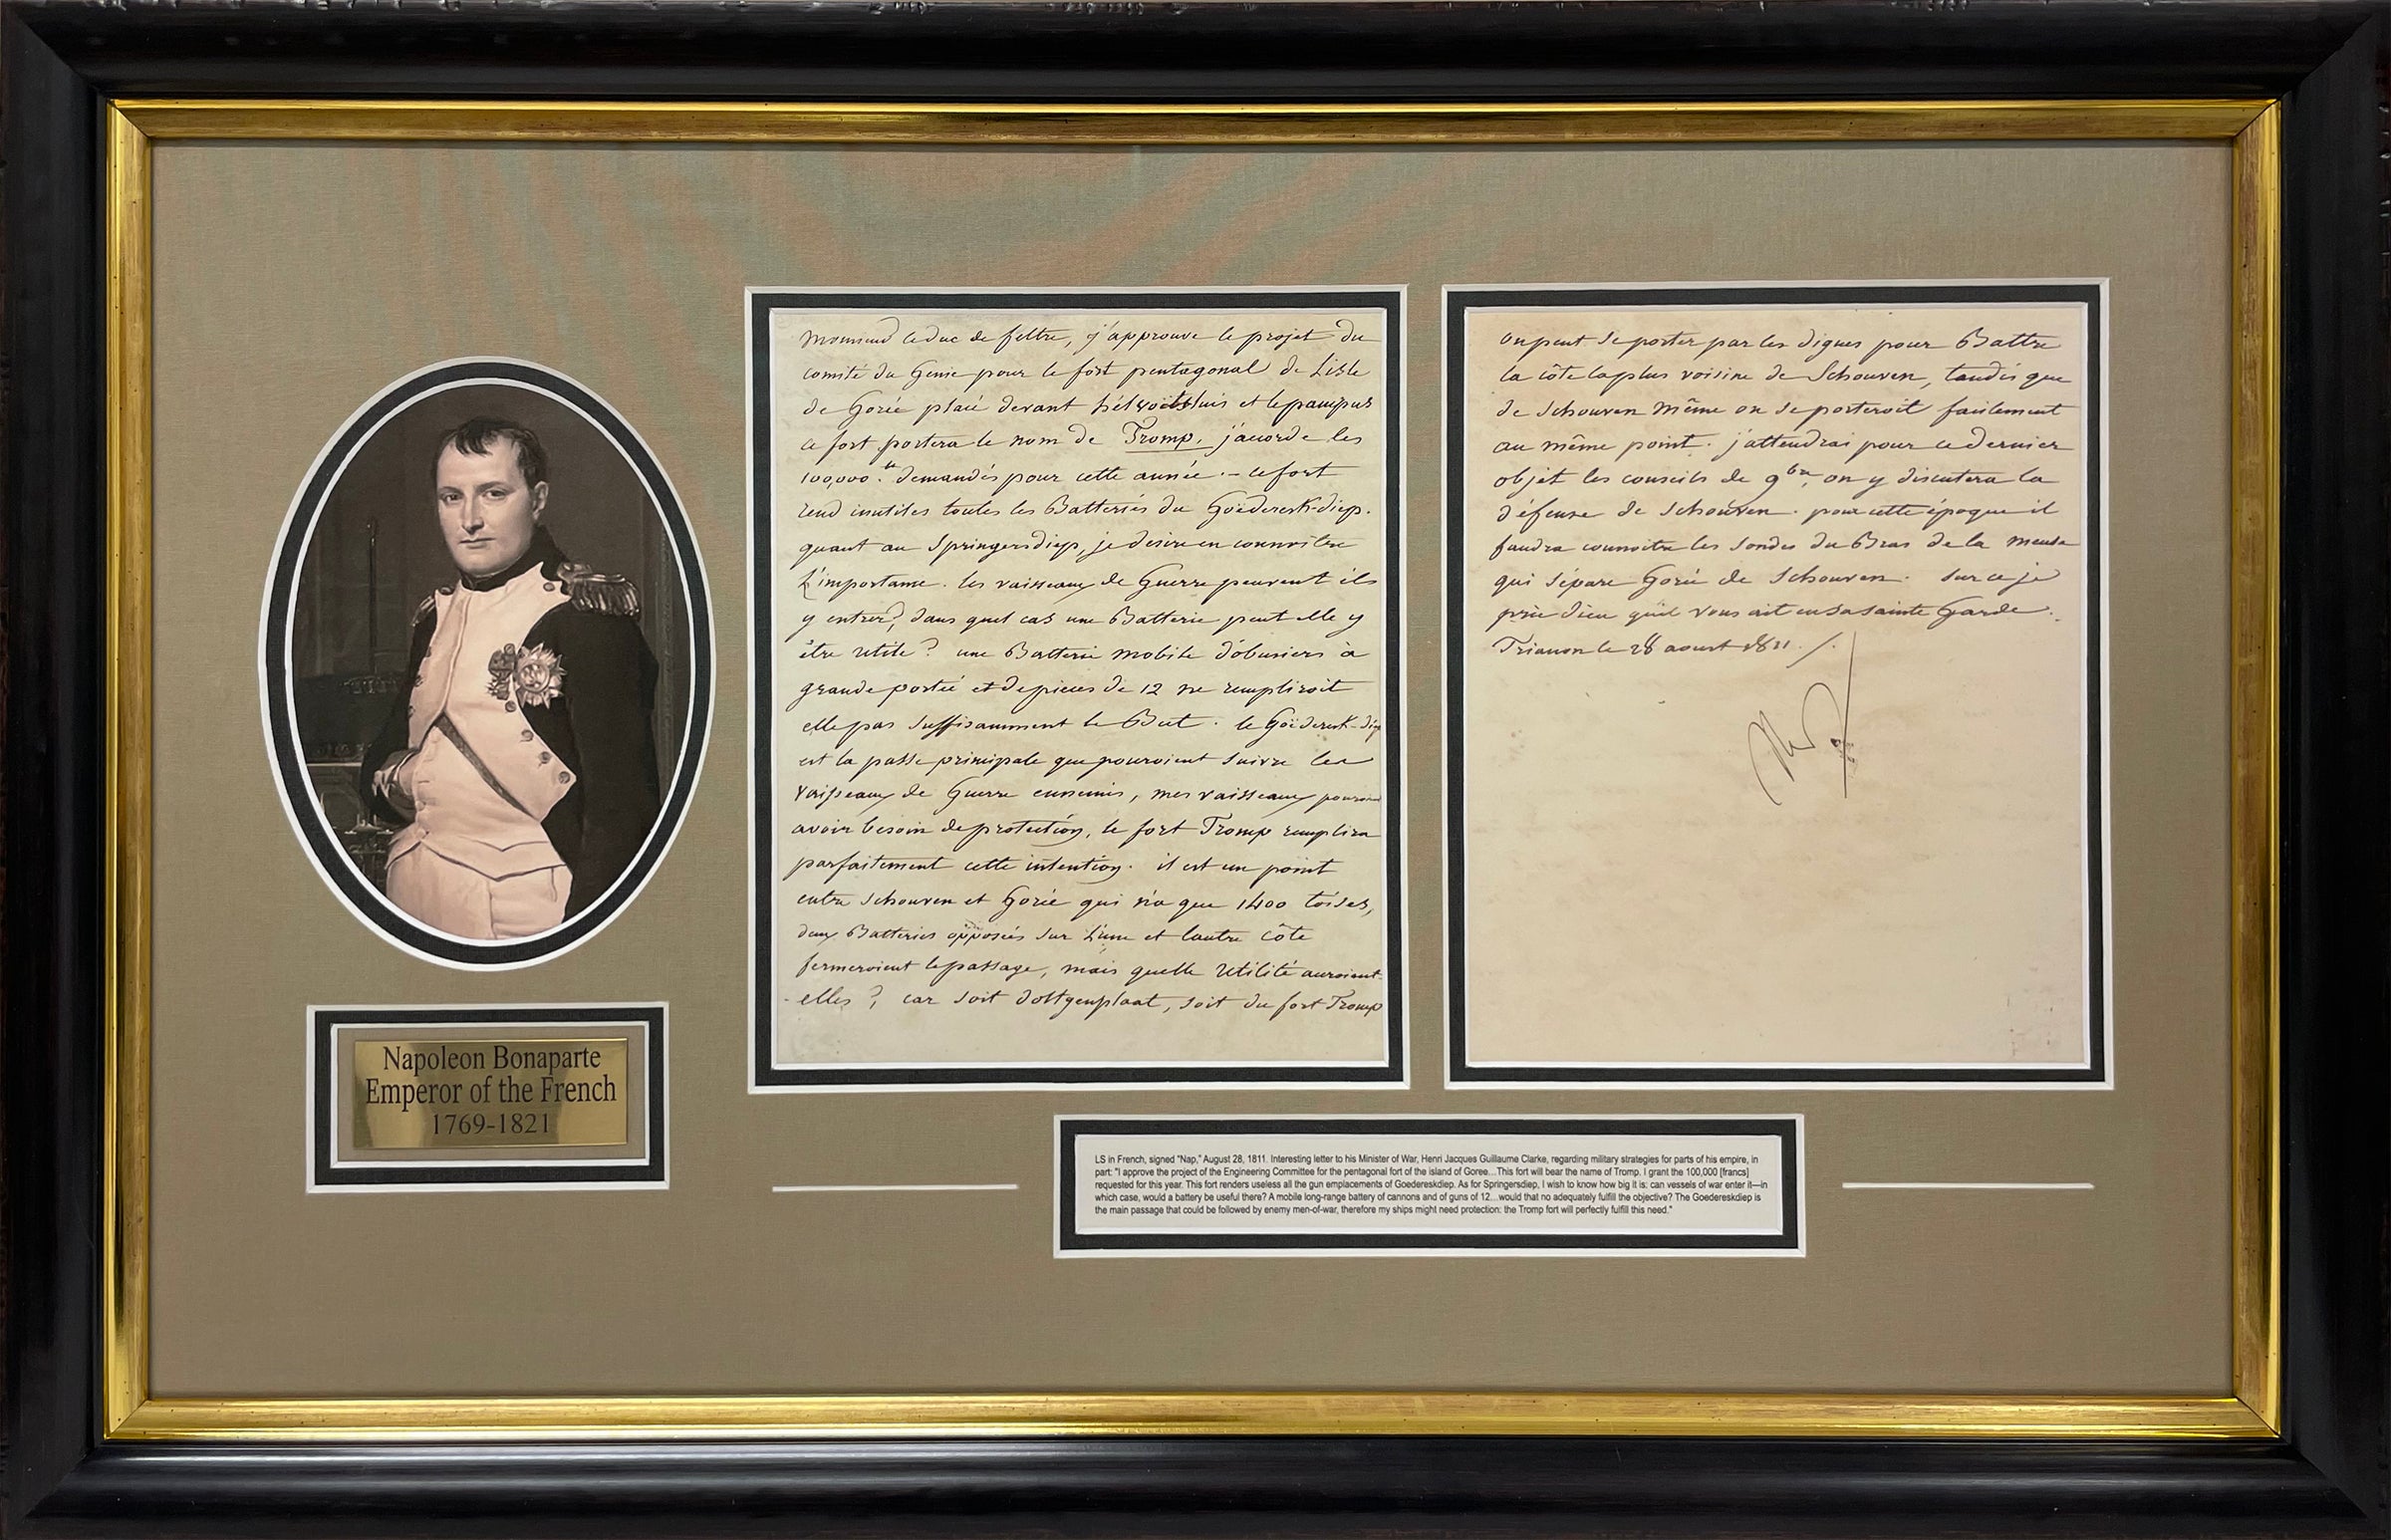 Napoleon Bonaparte
Emperor of the French
1769-1821
Monsieur le duc de feltre, j'approuve le projet du
comité du Génie pour le fort pentagonal de Lisle
de Gorée placé devant hélvoëtsluis et le pampus
ce fort portera le nom de Tromp. j'acorde les
100,000.ᶠ demandés pour cette année. - ce fort
rend inutiles toutes les Batteries du Goëderesk-diep.
quant au Springersdiep, je desire en connoitre
L'importance. les vaisseaux de Guerre peuvent ils
y entrer?, dans quel cas une Batterie peut elle y
être utile? une Batterie mobile d'obusiers à
grande portée et de pieces de 12 ne rempliroit
elle pas suffisamment le But. le Goëderesk-diep
est la passe principale que pouroient suivre les
vaisseaux de Guerre ennemis, mes vaisseaux
avoir besoin de protection, le fort Tromp remplira
parfaitement cette intention. il est un point
entre Schouven et Gorée qui n'a que 1400 toises,
deux Batteries opposées sur L'une et l'autre côte
fermeroient le passage, mais quelle utilité auroient
- elles?, car soit d'ostgenplaat, soit du fort Tromp
on peut se porter par les digues pour Battre
la côte la plus voisine de Schouven, tandis que
de Schouven même on se porteroit facilement
au même point. j'attendrai pour ce dernier
objet les conseils de 9bre, on y discutera la
défense de Schouven. pour cette époque il
faudra connoitre les sondes du Bras de la meuse
qui sépare Gorée de Schouven. sur ce je
prie dieu qu'il vous ait en sa sainte Garde.
Trianon le 28 aoust 1811 ./.
LS in French, signed "Nap," August 28, 1811. Interesting letter to his Minister of War, Henri Jacques Guillaume Clarke, regarding military strategies for parts of his empire, in
part: "I approve the project of the Engineering Committee for the pentagonal fort of the island of Goree...This fort will bear the name of Tromp. I grant the 100,000 [francs]
requested for this year. This fort renders useless all the gun emplacements of Goedereskdiep. As for Springersdiep, I wish to know how big it is: can vessels of war enter it—in
which case, would a battery be useful there? A mobile long-range battery of cannons and of guns of 12...would that no adequately fulfill the objective? The Goedereskdiep is
the main passage that could be followed by enemy men-of-war, therefore my ships might need protection: the Tromp fort will perfectly fulfill this need."